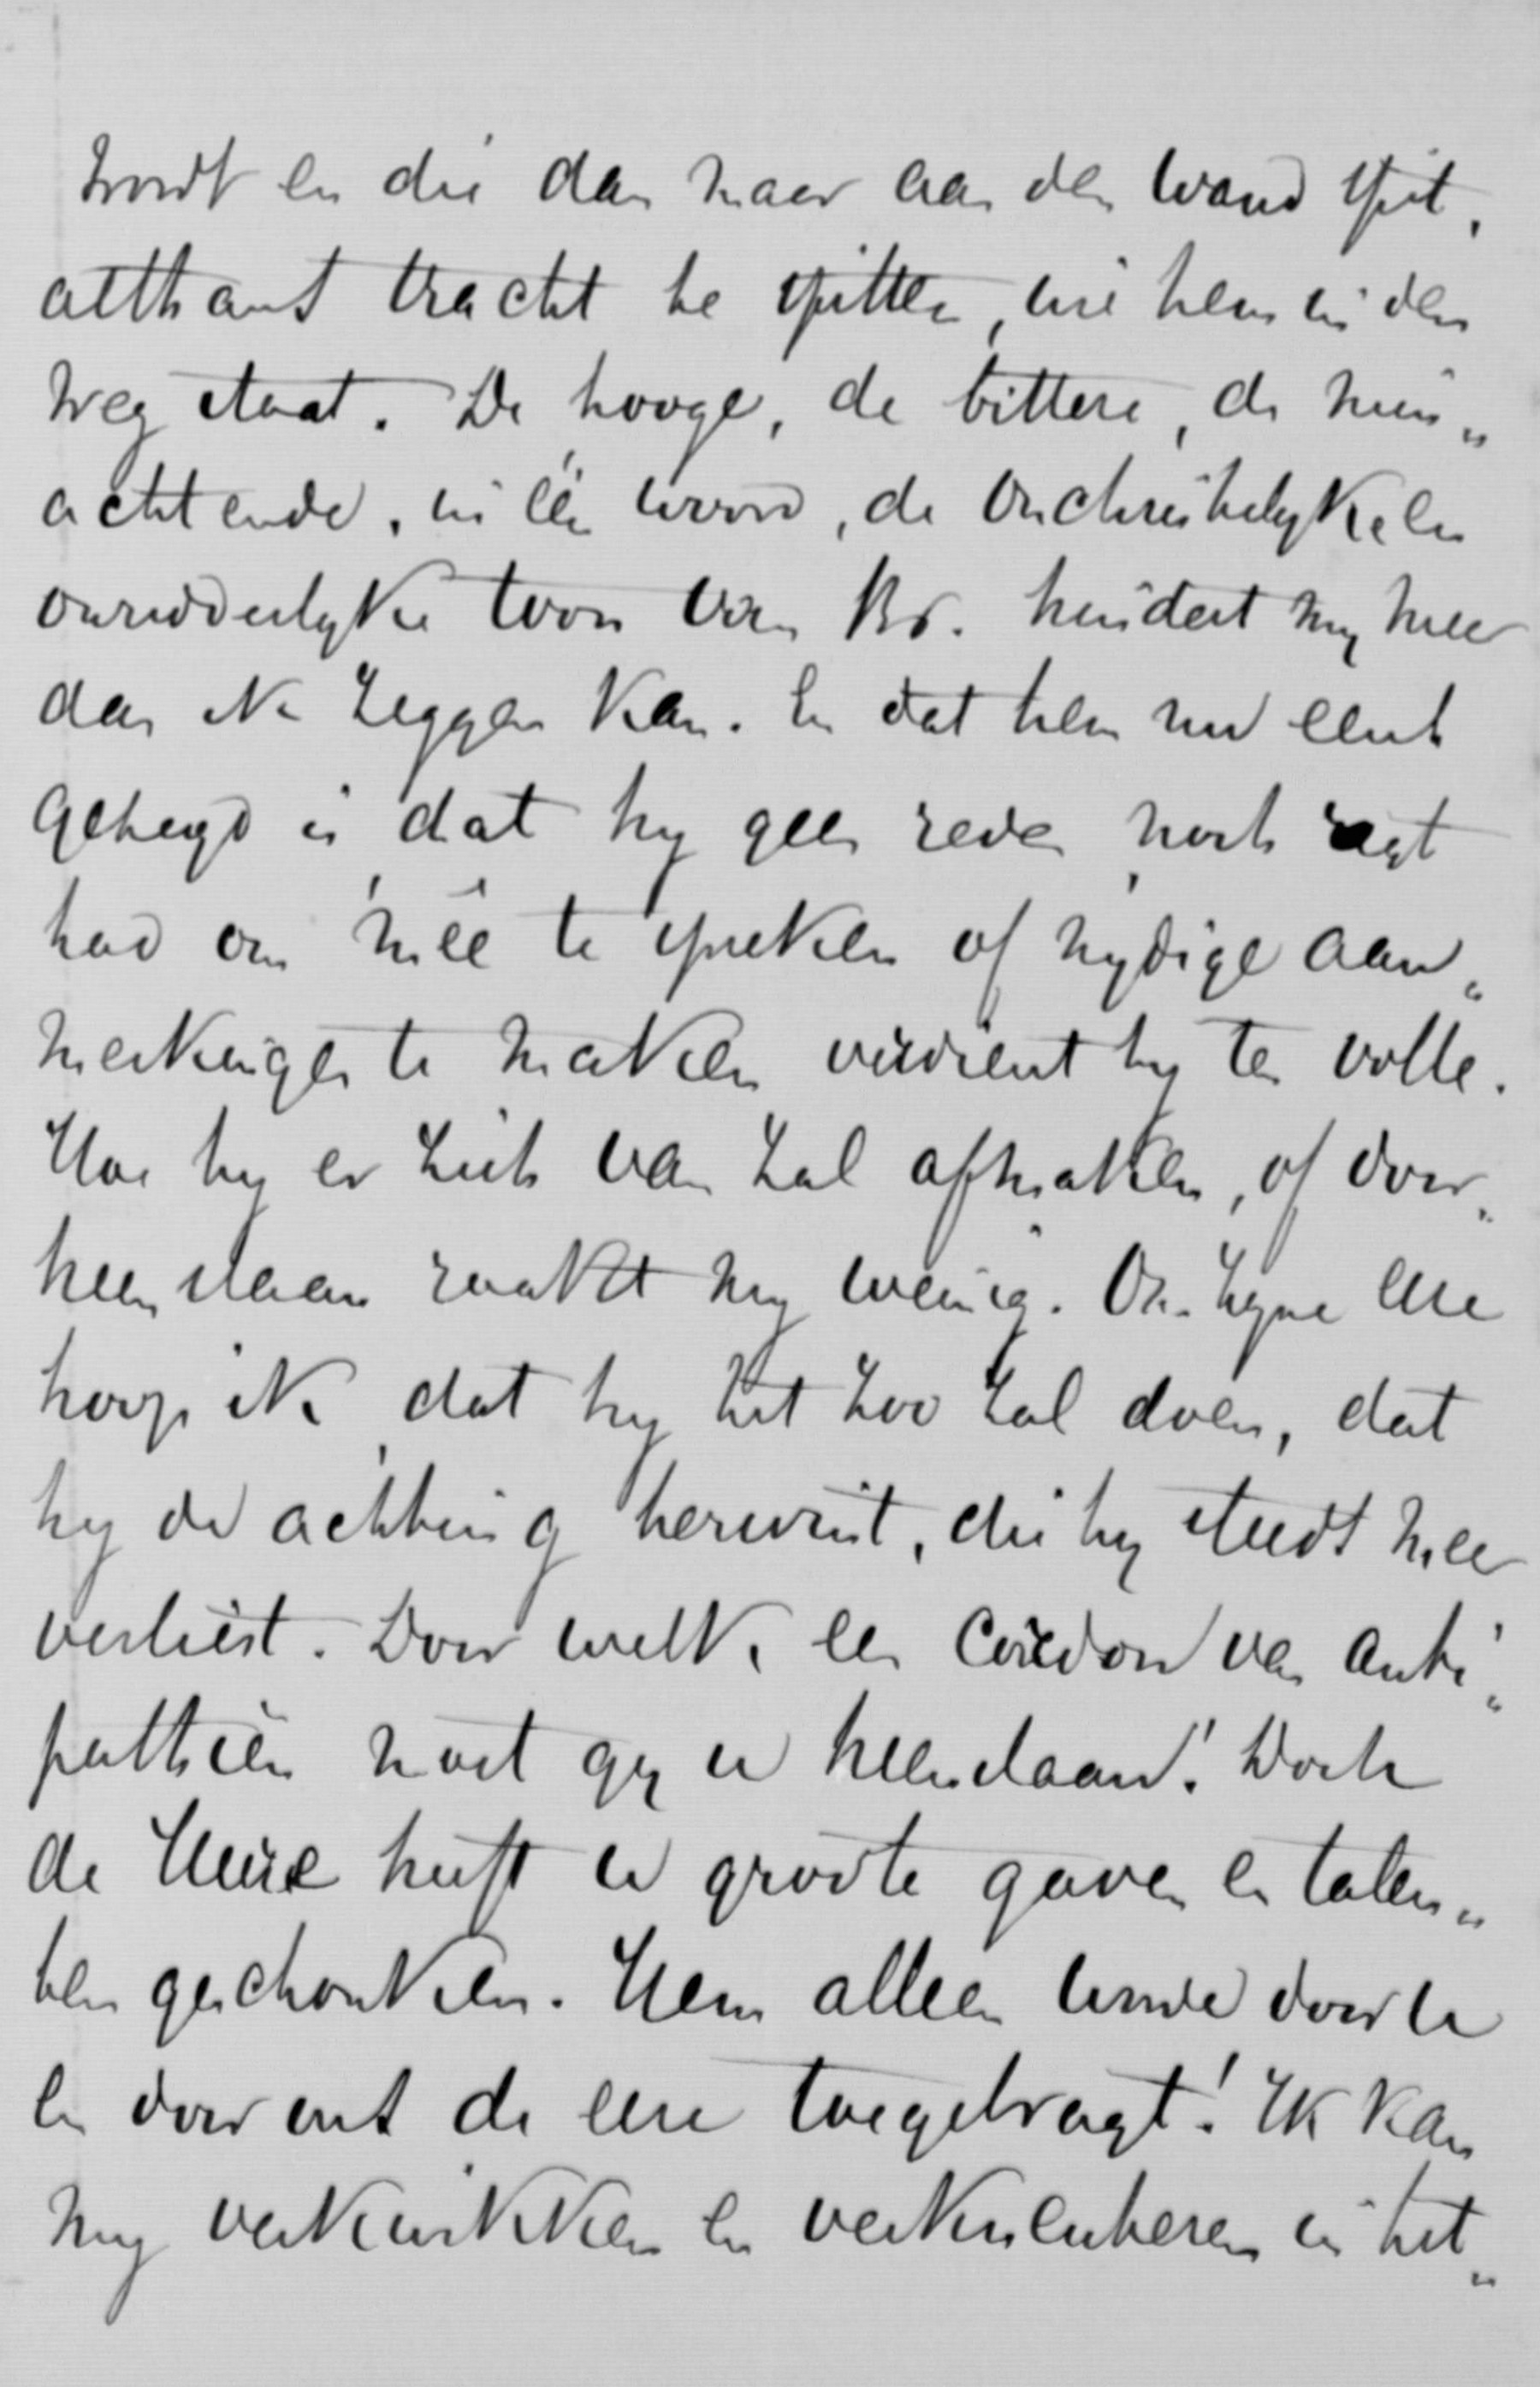 wordt en die dan maar aan den wand spit,
althans tracht te spitten, wie hem in den
weg staat. De hooge, de bittere, de min„
achtende, in één woord, de onchristelyke en
onridderlyke toon van Br. hindert my meer
dan ik zeggen kan. En dat hem nu eens
gezegd is dat hy geen reden noch regt
had om mêe te spreken of nydige aan„
merkingen te maken verdient hy ten volle.
Hoe hy er zich van zal afmaken, of door„
heen slaan raakt my weinig. Om zyne eere
hoop ik dat hy het zoo zal doen, dat
hy de achting herwint, die hy steeds meer
verliest. Door welk een cordon van anti„
pathiën moet gy u heenslaan! Doch
de Heere heeft u groote gaven en talen„
ten geschonken. Hem alleen worde door u
en door ons de eere toegebragt! Ik kan
my verkwikken en verkneuteren in het„